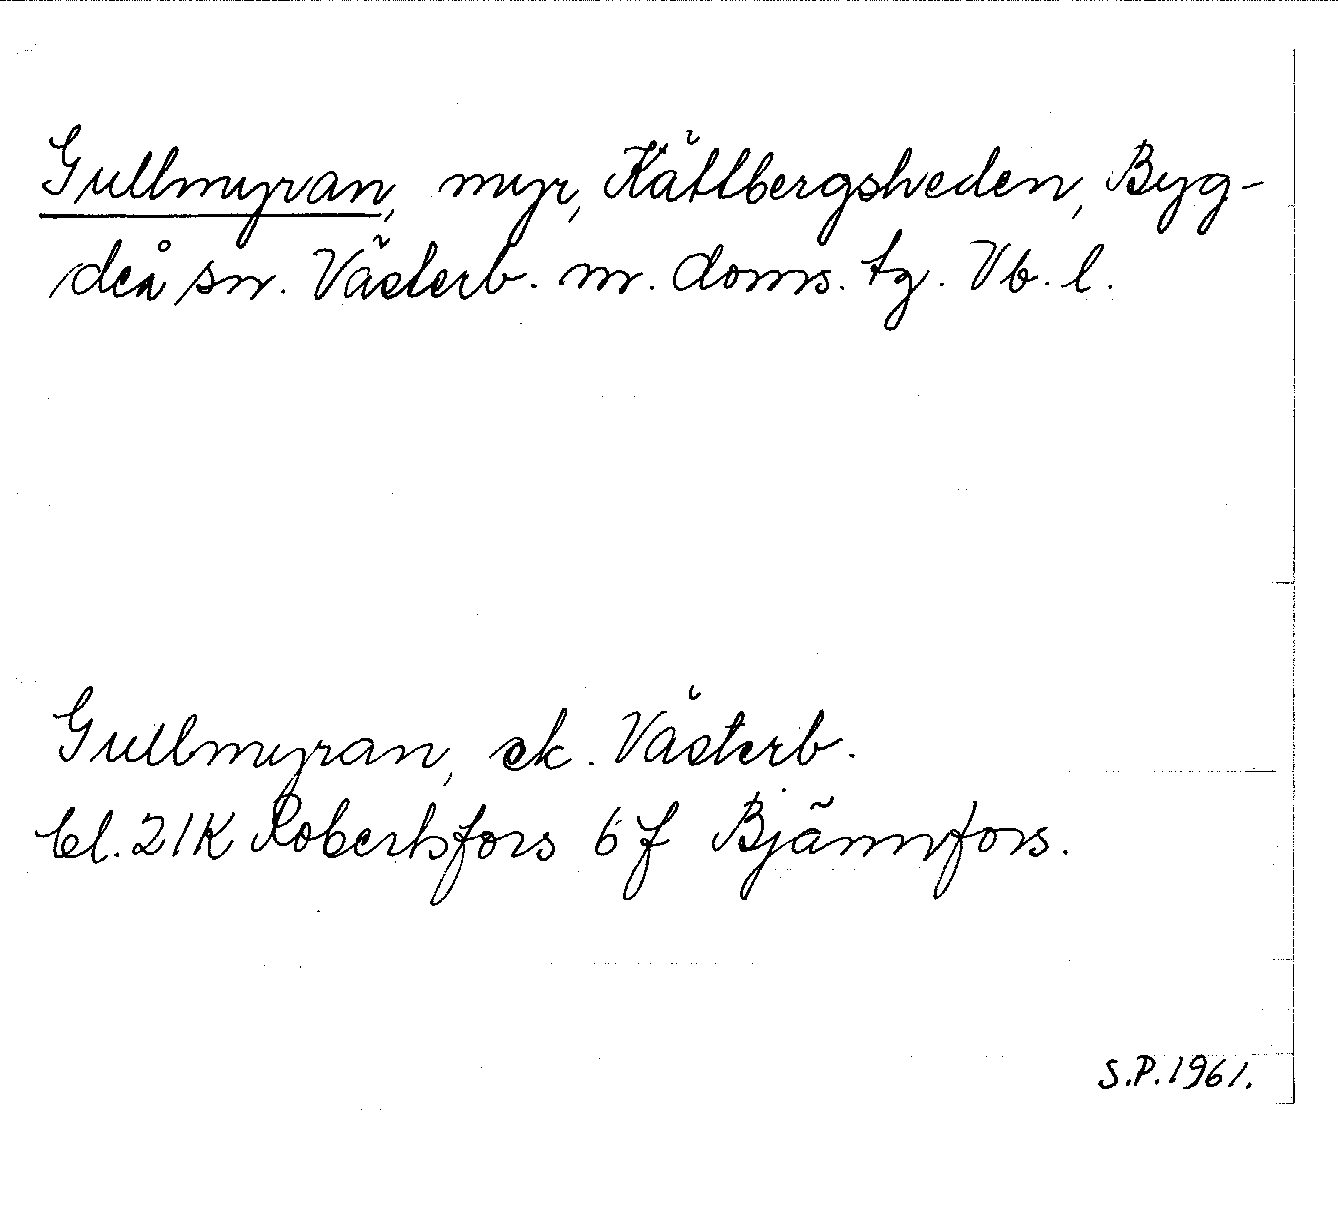 Gullmyran, myr, Kätlbergsheden, Byg-
deå sn. Västerb. n. doms. tg. Vb. l.
Gullmyran, ek. Västerb.
bl. 21K Robertsfors 6 f Bjännfors.
S.P. 1961.